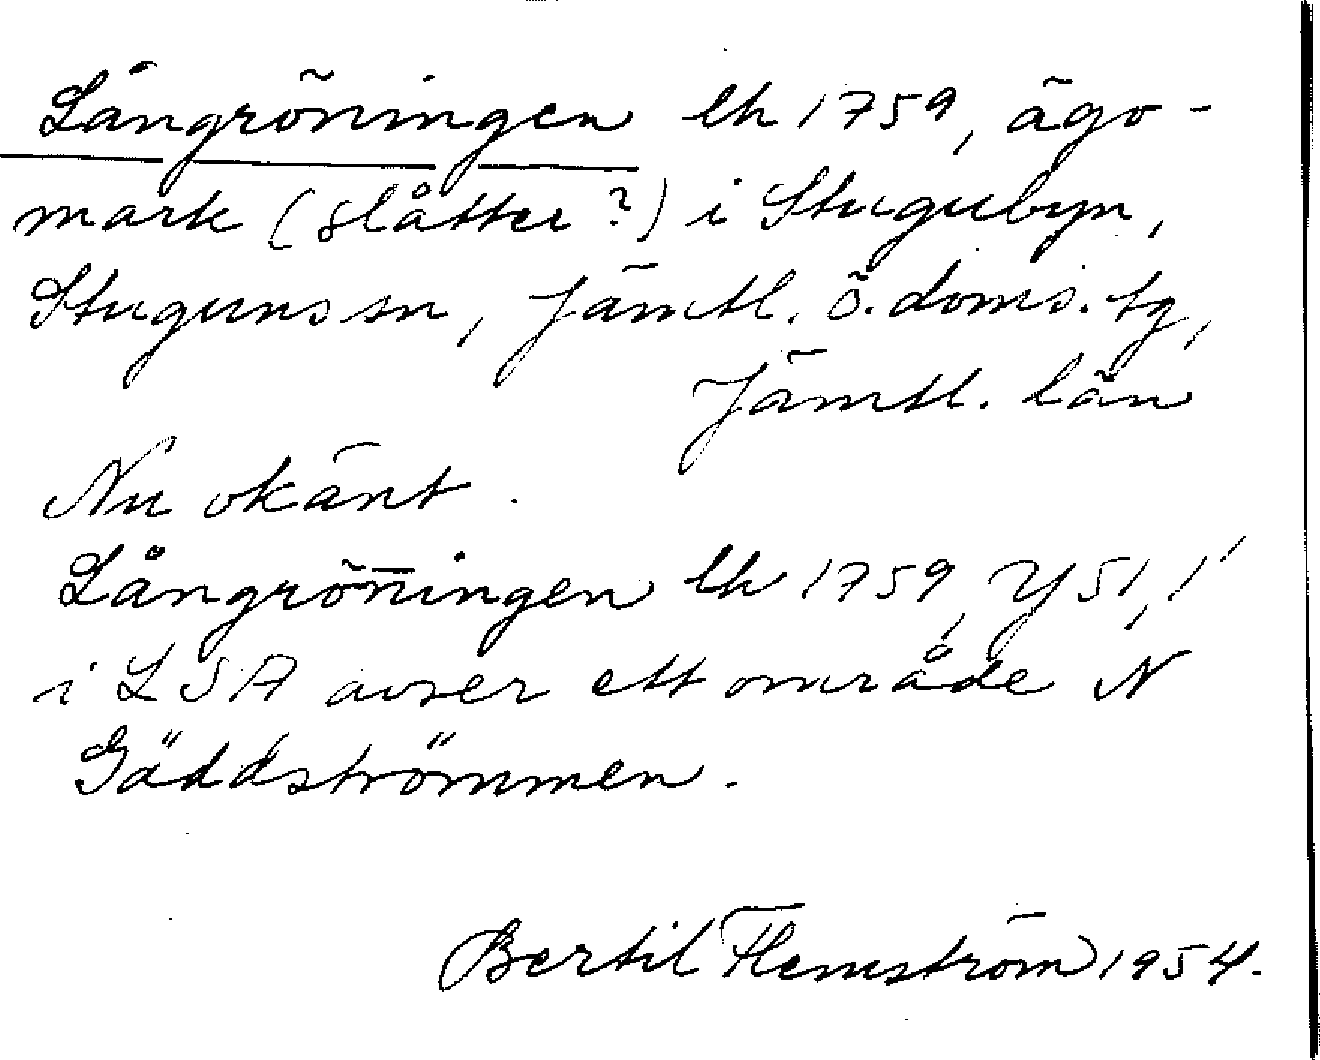 Långröningen lh 1759, ägo-
mark (slåtter?) i Stugubyn,
Stuguns sn, Jämtl. ö. doms. tg,
Jämtl. län
Nu okänt.
Långrön̄ingen lh 1759, Y51, 1'
i LSA avser ett område N
Gäddströmmen.
Bertil Flemström 1954.